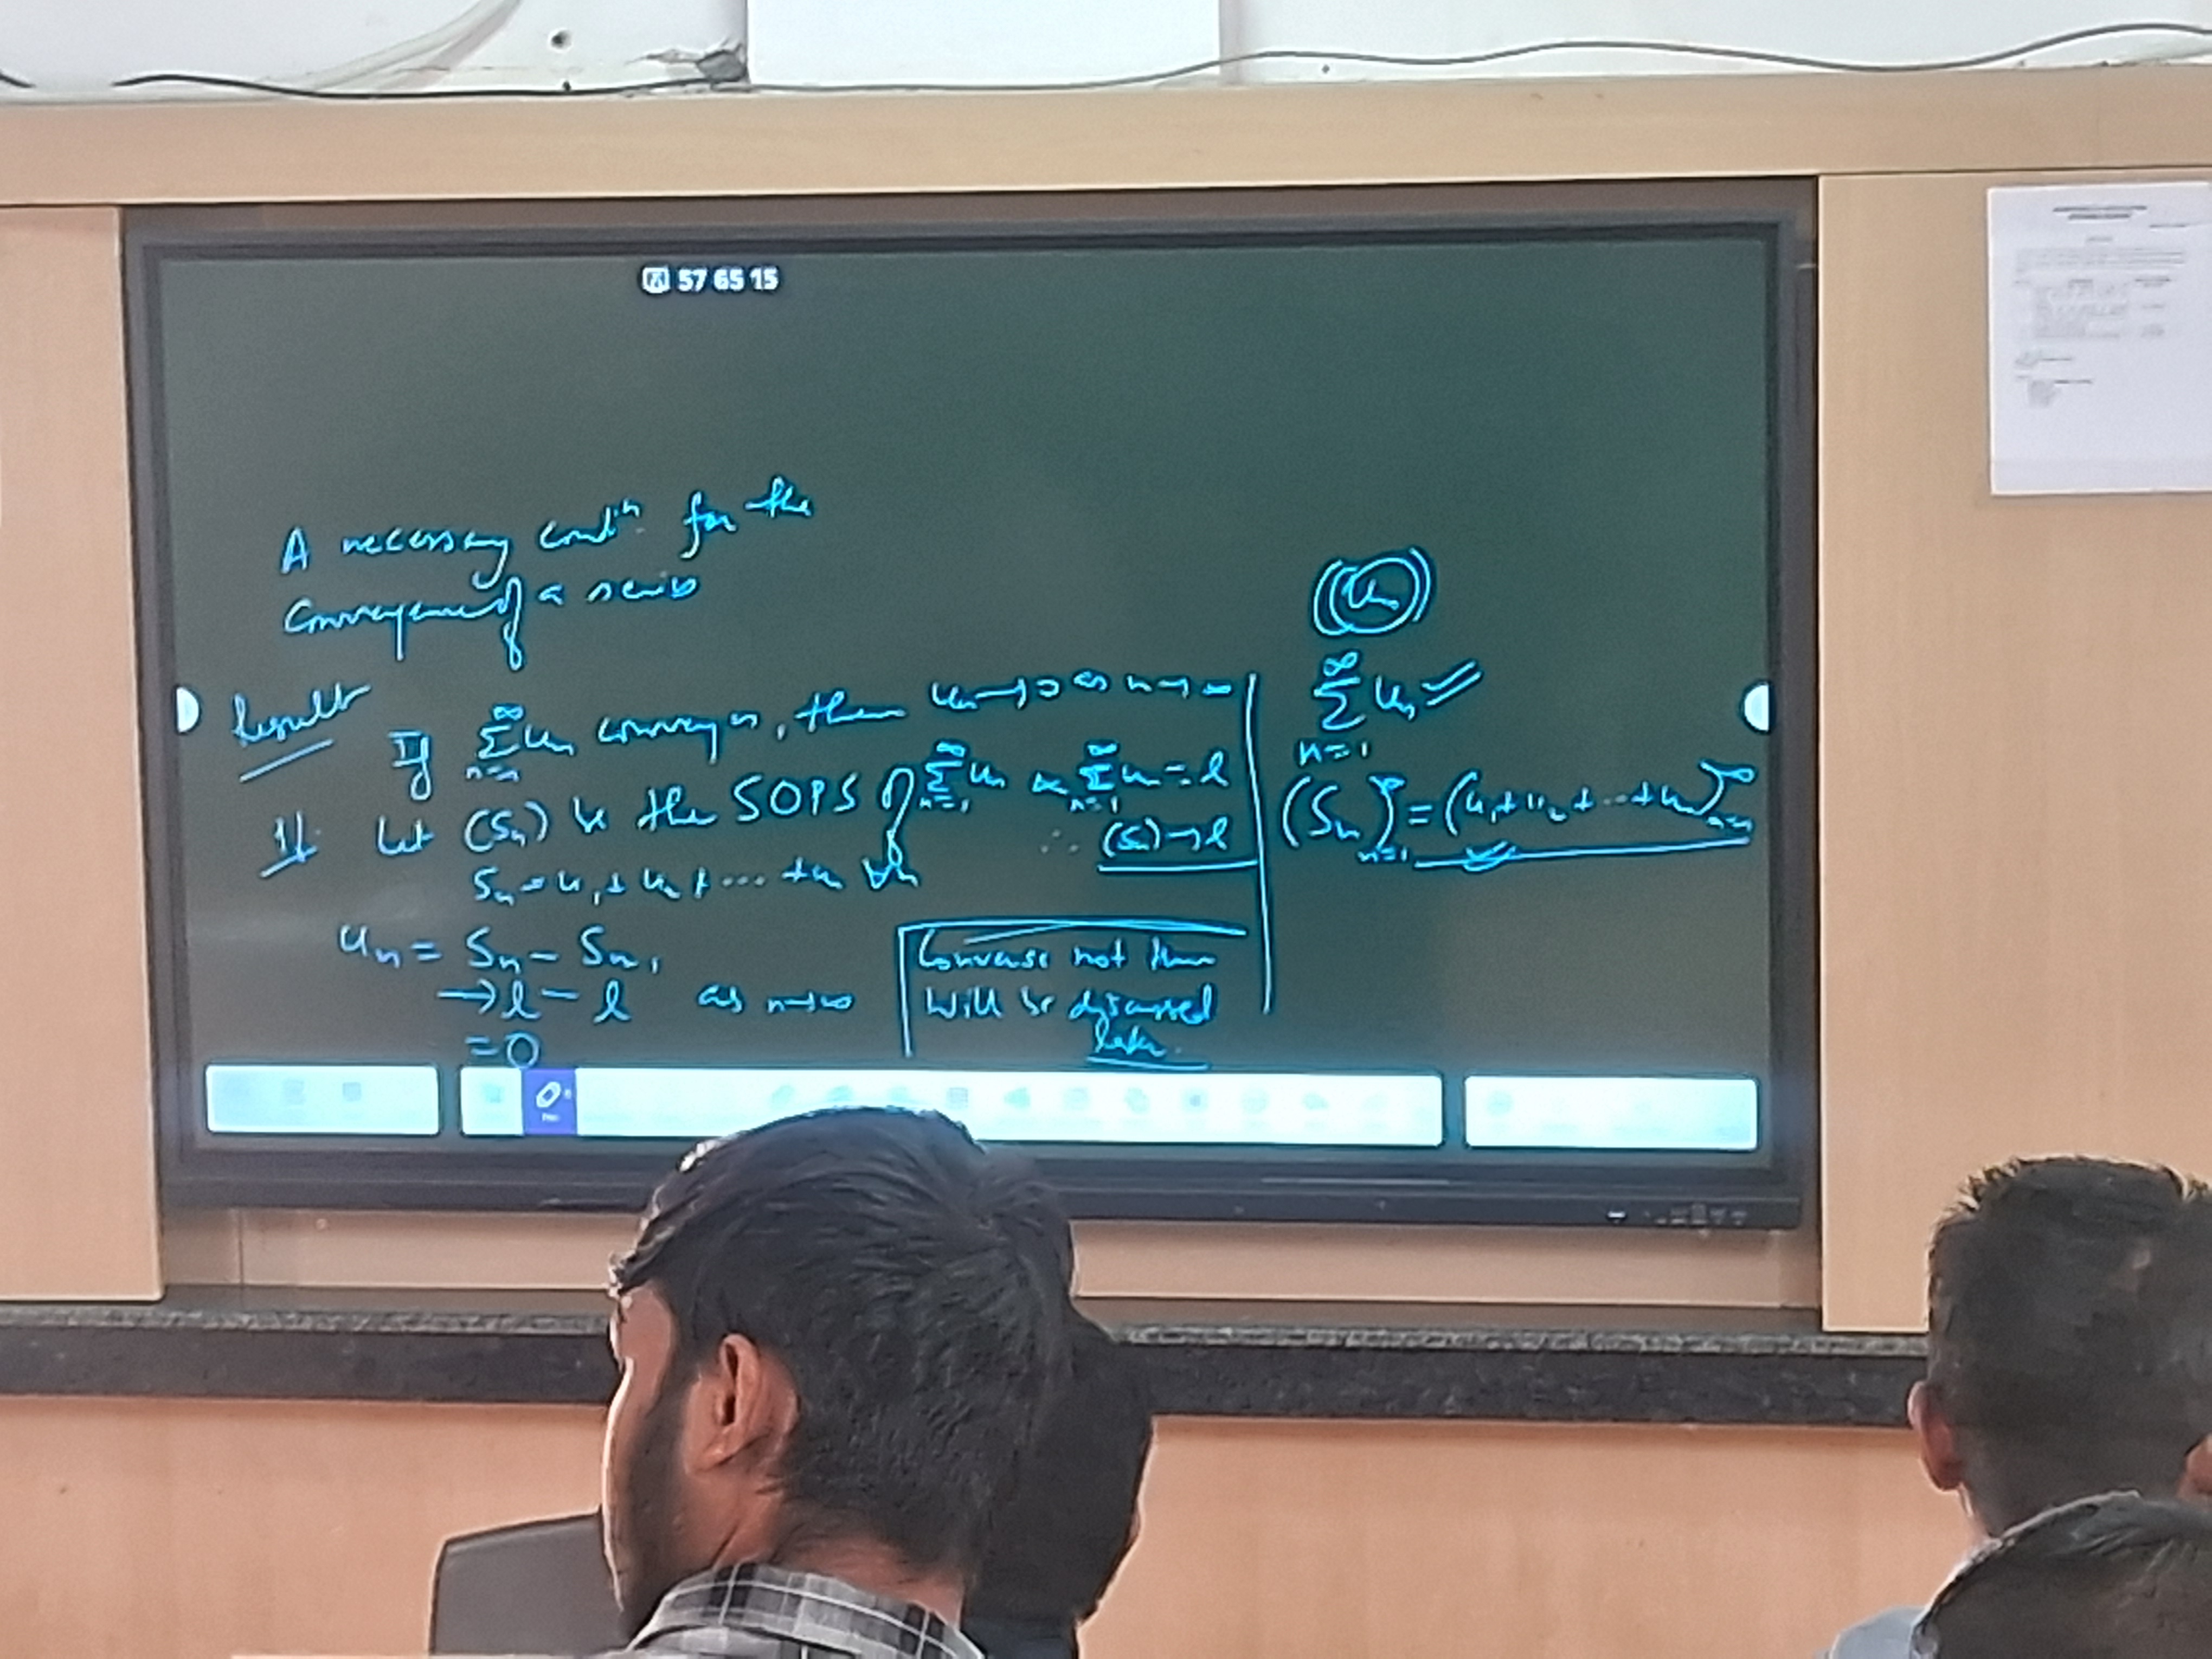 57 65 15
A necessary condⁿ for the
convergence of a series
Result
If ∑_{n=1}^∞ uₙ converges, then uₙ → 0 as n → ∞
Pf. Let (Sₙ) be the SOPS of ∑_{n=1}^∞ uₙ & ∑_{n=1}^∞ uₙ = l
∴ (Sₙ) → l
Sₙ = u₁ + u₂ + ... + uₙ ∀n
uₙ = Sₙ − Sₙ₋₁
→ l − l as n→∞
= 0
Converse not true
Will be discussed
later.
(uₙ)
∑_{n=1}^∞ uₙ
(Sₙ)_{n=1}^∞ = (u₁+u₂+...+uₙ)_{n=1}^∞